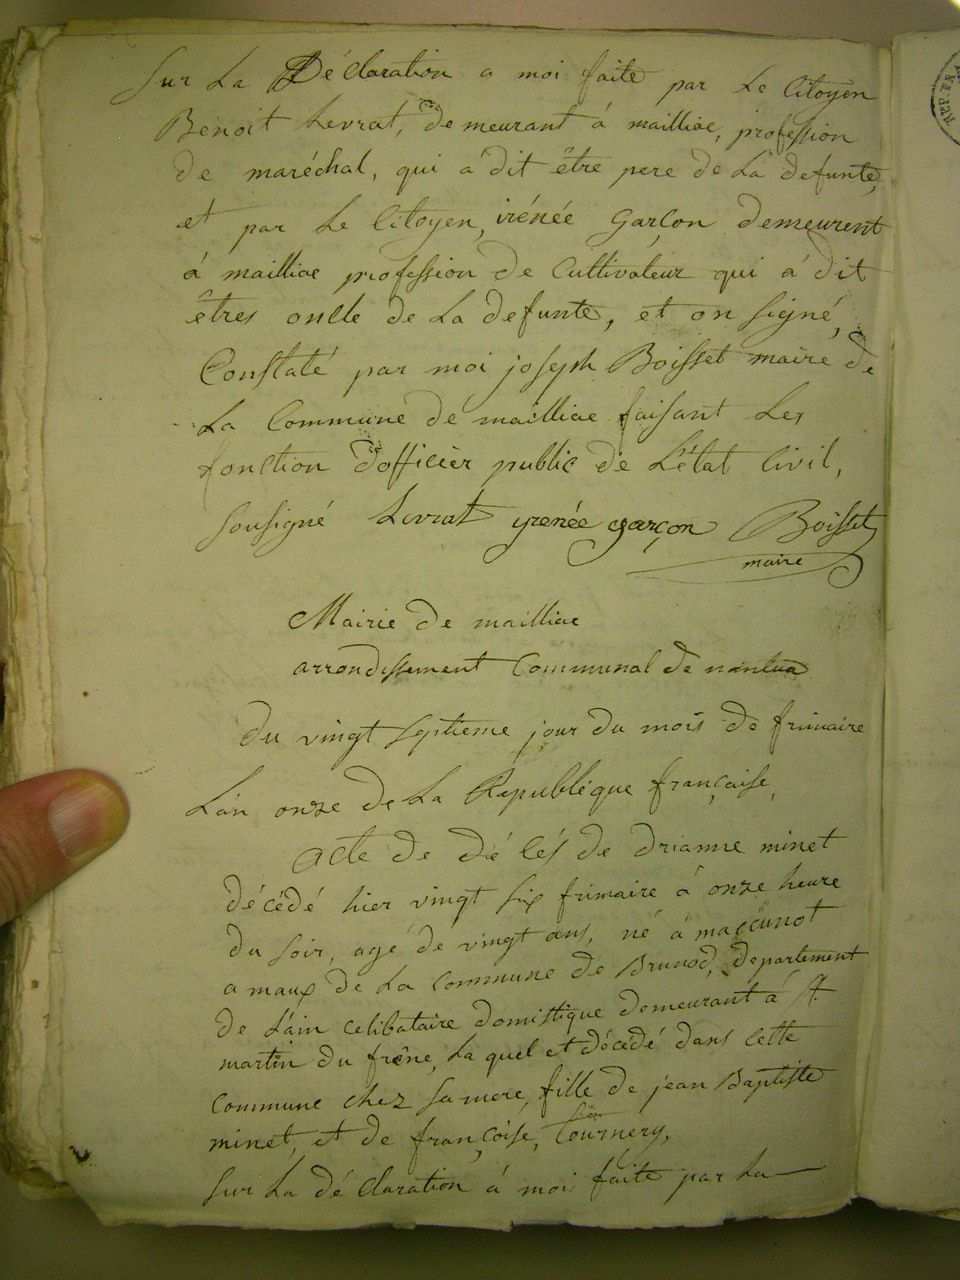 Sur La Déclaration a moi faite par Le Citoyen
Benoit Levrat, Demeurant á mailliac, profession
de maréchal, qui a dit être pere de La defunte,
et par Le Citoyen, irénée garçon demeurent
á mailliac profession de Cultivateur qui á dit
êtres oncle de La defunte, et on signé,
Constaté par moi joseph Boisset maire de
La Commune de mailliac faisant Les
fonction d'officier public de L'état Civil,
sousigné Levrat yrenée garçon Boisset
maire
Mairie de mailliac
arrondissement Communal de nantua
du vingt septieme jour du mois de frimaire
L'an onze de La Republique française,
acte de dé cés de drianne minet
décédé hier vingt six frimaire á onze heure
du soir, agé de vingt ans, né á maçcunot
amaux de La Commune de Brunod, departement
de L'ain celibataire domistique demeurant á St.
martin du frêne, La quel et décédé dans cette
Commune chez samere, fille de jean Baptiste
minet, et de françoise, Tournery,
sur La dé claration á moi faite par La